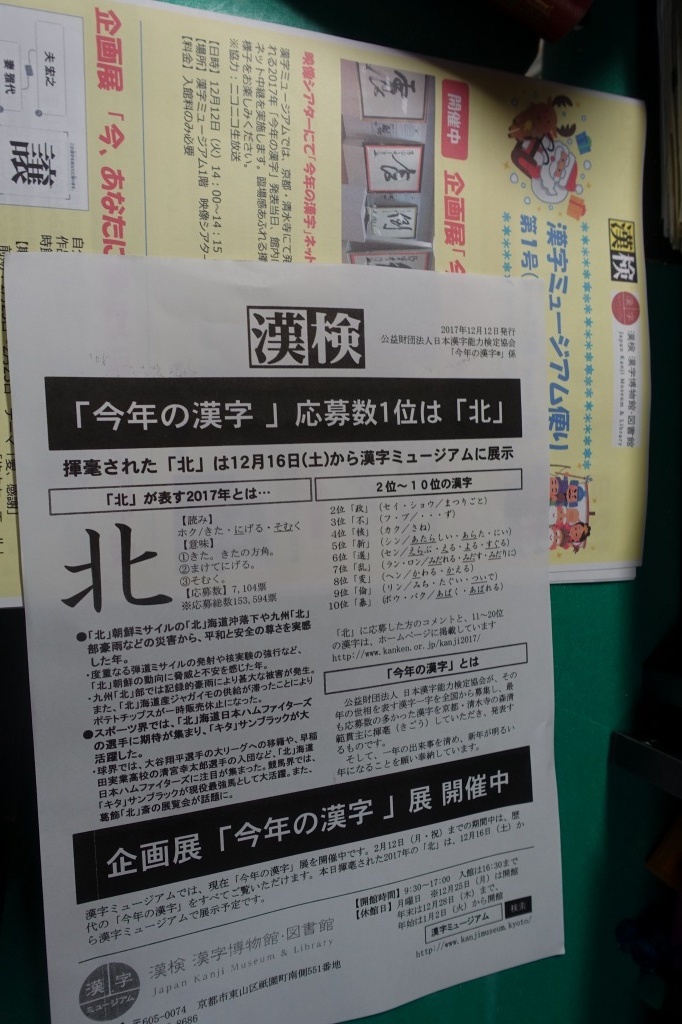 漢検
2017年12月12日発行
公益財団法人日本漢字能力検定協会
「今年の漢字®」係
「今年の漢字 」応募数1位は「北」
揮毫された「北」は12月16日(土)から漢字ミュージアムに展示
「北」が表す2017年とは…
北
【読み】
ホク/きた・にげる・そむく
【意味】
①きた。きたの方角。
②まけてにげる。
③そむく。
【応募数】7,104票
※応募総数153,594票
●「北」朝鮮ミサイルの「北」海道沖落下や九州「北」
部豪雨などの災害から、平和と安全の尊さを実感
した年。
・度重なる弾道ミサイルの発射や核実験の強行など、
「北」朝鮮の動向に脅威と不安を感じた年。
・九州「北」部では記録的豪雨により甚大な被害が発生。
また、「北」海道産ジャガイモの供給が滞ったことにより
ポテトチップスが一時販売休止になった。
●スポーツ界では、「北」海道日本ハムファイターズ
の選手に期待が集まり、「キタ」サンブラックが大
活躍した。
・球界では、大谷翔平選手の大リーグへの移籍や、早稲
田実業高校の清宮幸太郎選手の入団など、「北」海道
日本ハムファイターズに注目が集まった。競馬界では、
「キタ」サンブラックが現役最強馬として大活躍。また、
葛飾「北」斎の展覧会が話題に。
２位～１０位の漢字
2位「政」（セイ・ショウ/まつりごと）
3位「不」（フ・ブ/・・・ず）
4位「核」（カク/さね）
5位「新」（シン/あたらしい・あらた・にい）
6位「選」（セン/えらぶ・える・よる・すぐる）
7位「乱」（ラン・ロン/みだれる・みだす・みだりに）
8位「変」（ヘン/かわる・かえる）
9位「倫」（リン/みち・たぐい・ついで）
10位「暴」（ボウ・バク/あばく・あばれる）
「北」に応募した方のコメントと、11～20位
の漢字は、ホームページに掲載しています
http://www.kanken.or.jp/kanji2017/
「今年の漢字」とは
公益財団法人 日本漢字能力検定協会が、その
年の世相を表す漢字一字を全国から募集し、最
も応募数の多かった漢字を京都・清水寺の森清
範貫主に揮毫（きごう）していただき、発表す
るものです。
そして、一年の出来事を清め、新年が明るい
年になることを願い奉納しています。
企画展「今年の漢字 」展 開催中
漢字ミュージアムでは、現在「今年の漢字」展を開催中です。2月12日（月・祝）までの期間中は、歴
代の「今年の漢字」をすべてご覧いただけます。本日揮毫された2017年の「北」は、12月16日（土）か
ら漢字ミュージアムで展示予定です。
【開館時間】9:30～17:00 入館は16:30まで
【休館日】月曜日 ※12月25日（月）は開館
年末は12月28日（木）まで、
年始は1月2日（火）から開館
漢字ミュージアム 検索
http://www.kanjimuseum.kyoto/
漢字
ミュージアム
漢検 漢字博物館・図書館
Japan Kanji Museum & Library
〒605-0074 京都市東山区祇園町南側551番地
8686
漢検
漢検 漢字博物館・図書館
Japan Kanji Museum & Library
漢字ミュージアム便り
第1号(
開催中
企画展「今
映像シアターにて「今年の漢字」ネット
漢字ミュージアムでは、京都・清水寺にて発
れる2017年「今年の漢字」発表当日、館内
ネット中継を実施します。臨場感あふれる揮
様子をお楽しみください。
※協力：ニコニコ生放送
【日時】12月12日（火）14：00～14：15
【場所】漢字ミュージアム1階 映像シアター
【料金】入館料のみ必要
企画展「今、あなたに
夫 宏之
妻 雅代